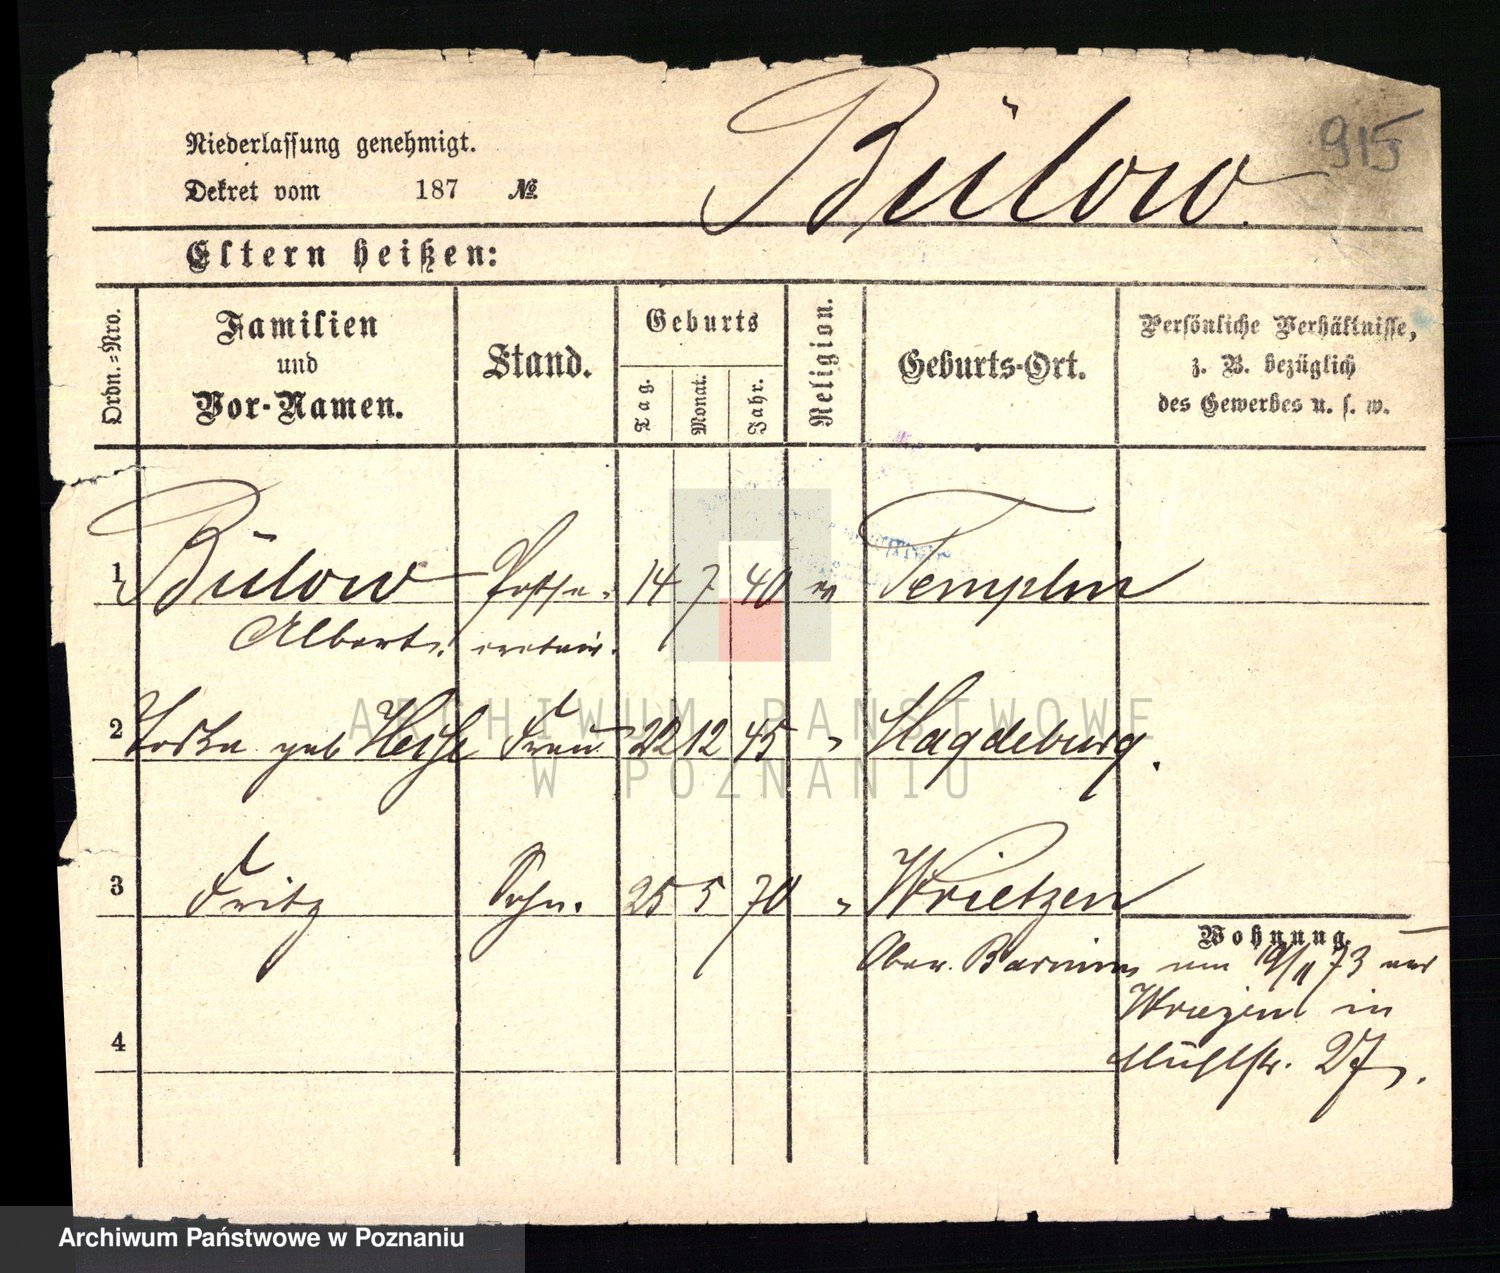 Niederlassung genehmigt.
Dekret vom 187 №
Bülow.
915
Eltern heißen:
Ordn.=Nro.
Familien
und
Vor-Namen.
Stand.
Geburts
Tag.
Monat.
Jahr.
Religion.
Geburts-Ort.
Persönliche Verhältnisse,
z. B. bezüglich
des Gewerbes u. s. w.
1 Bülow Postse- 14 7 40 ev Templin
Albert. cretair.
2 geb Frau 22 12 45 " Magdeburg.
3 Fritz Sohn. 25 5 70 " Wrietzen
Ober. Barnim
Wohnung.
am 19/11 73 aus
Wriezen in
Mühlstr. 27.
4
ARCHIWUM PAŃSTWOWE
W POZNANIU
Archiwum Państwowe w Poznaniu